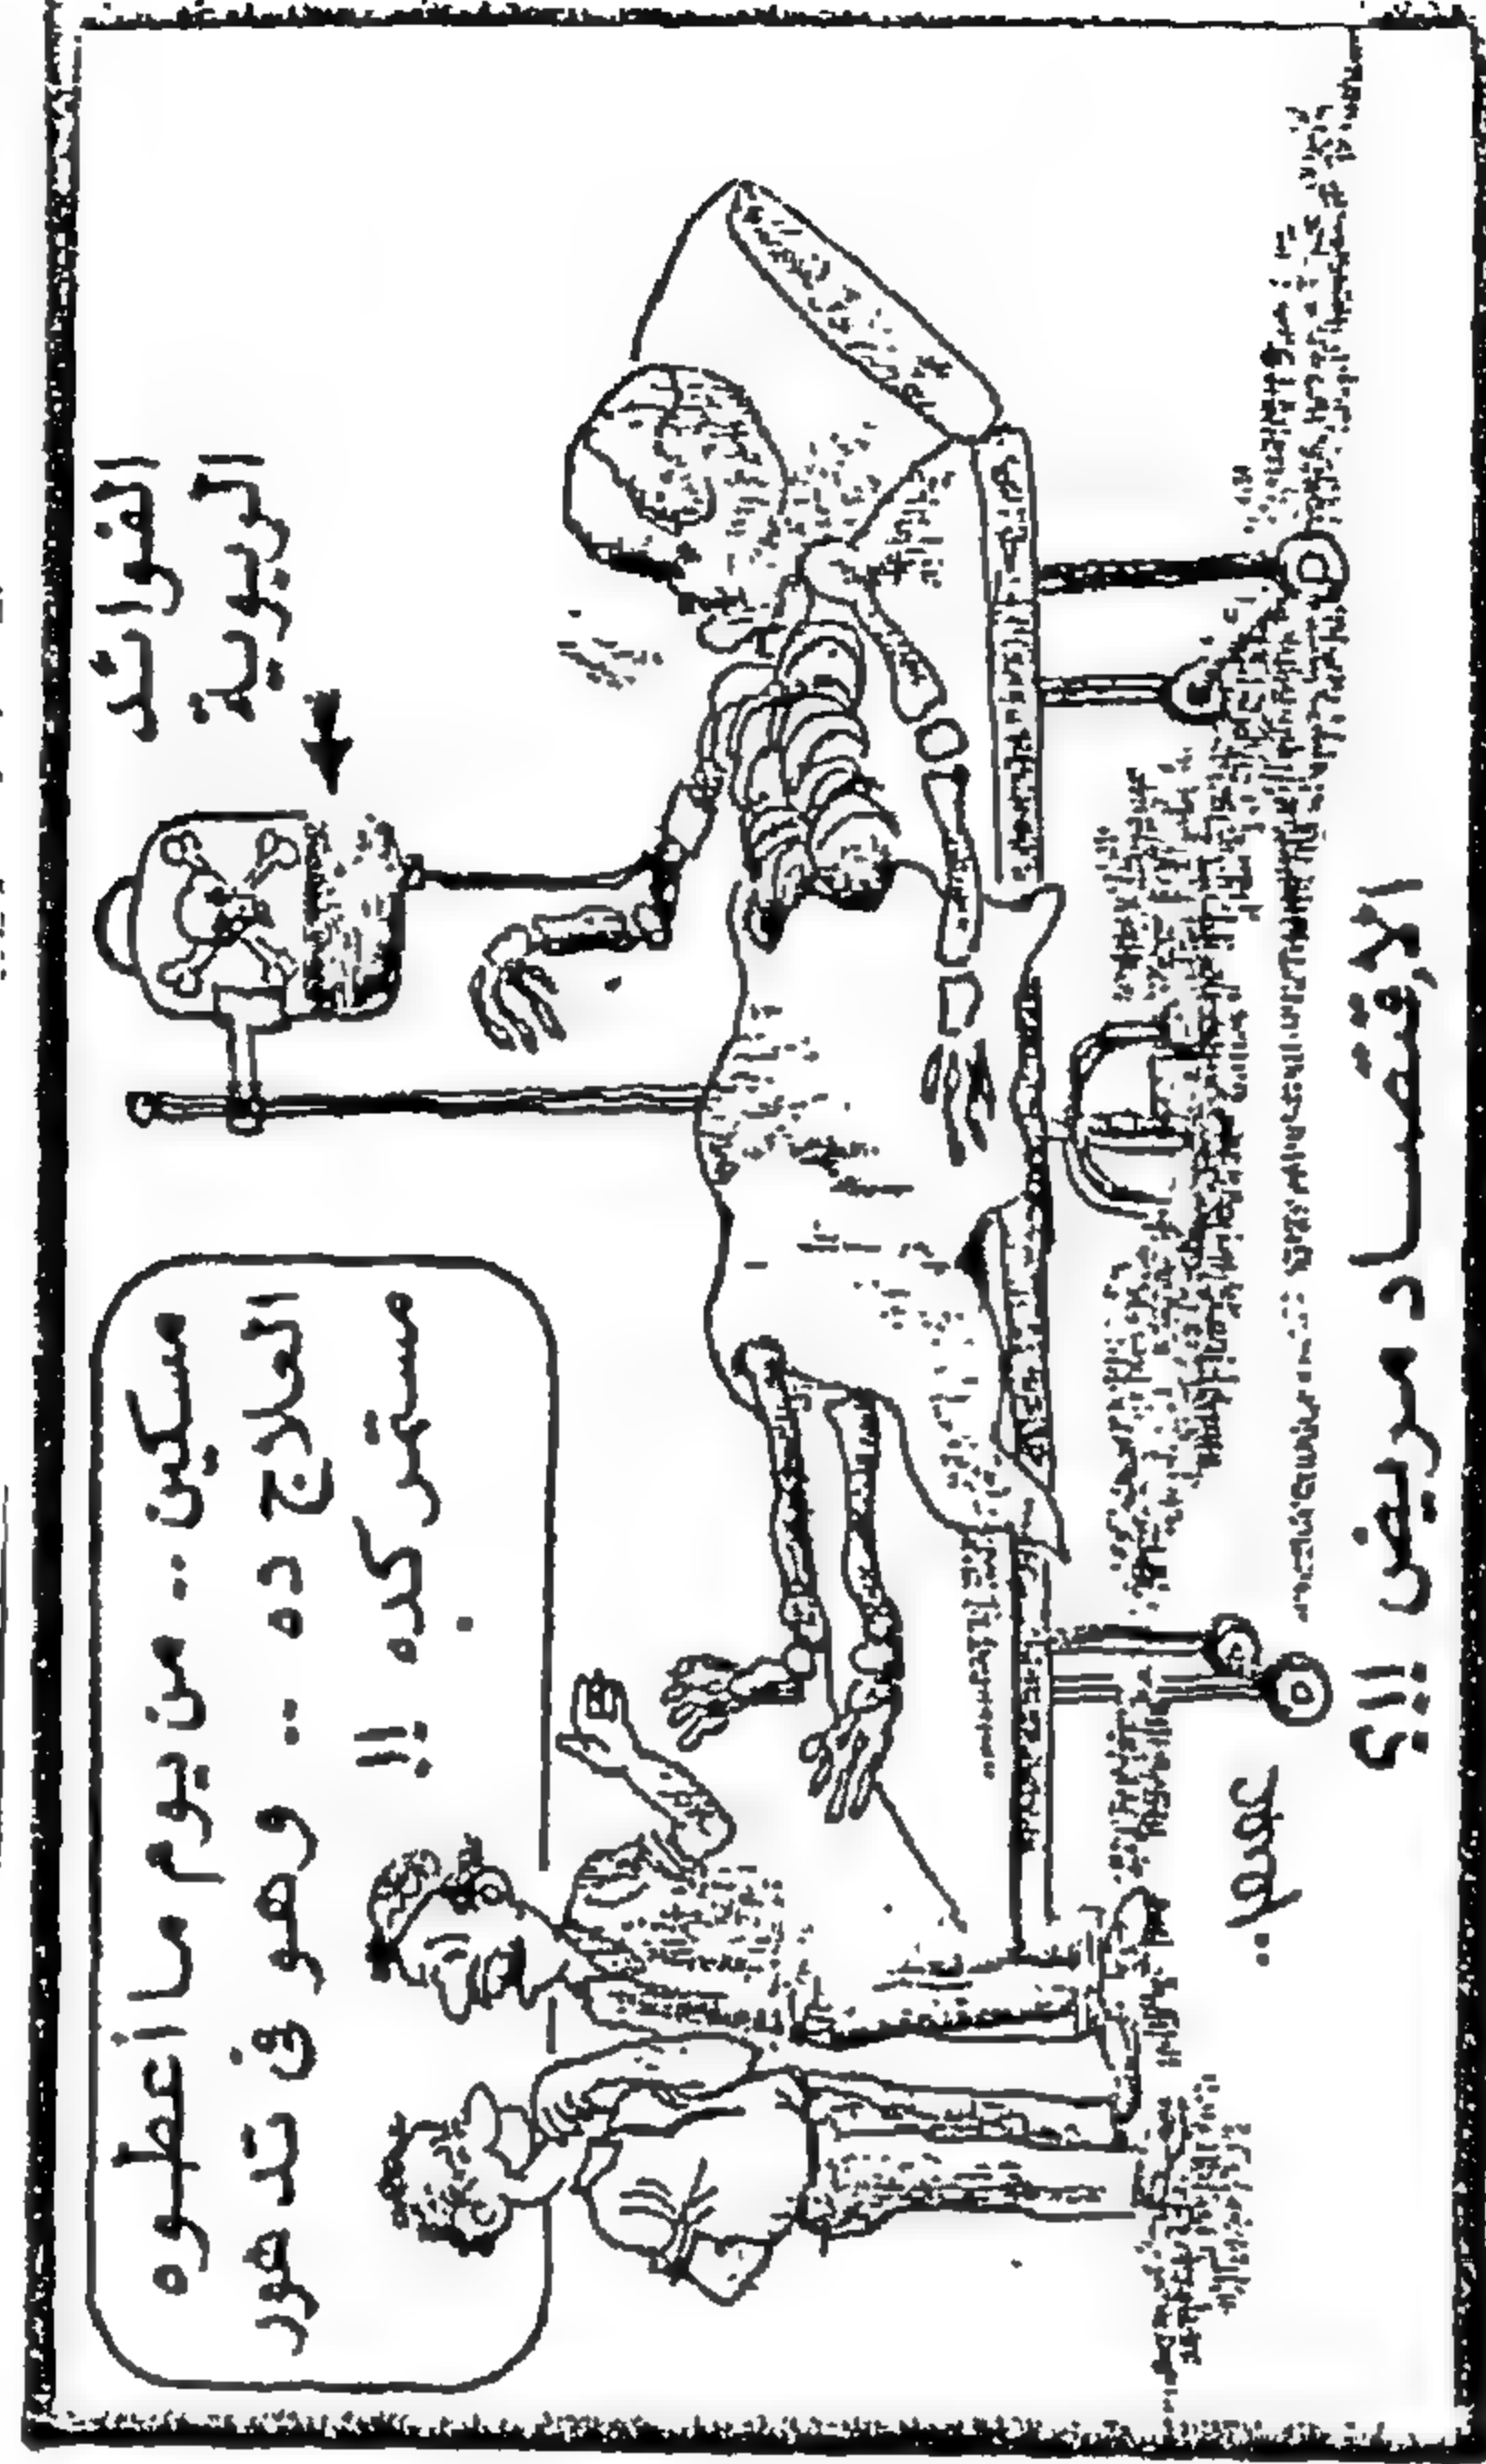 الفوائد
الربوية
مسكين .. من يوم ما أعطوه
العلاج ده .. وهو فى تدهور
مستمر كده !!
الإقتصاد مريض !!؟